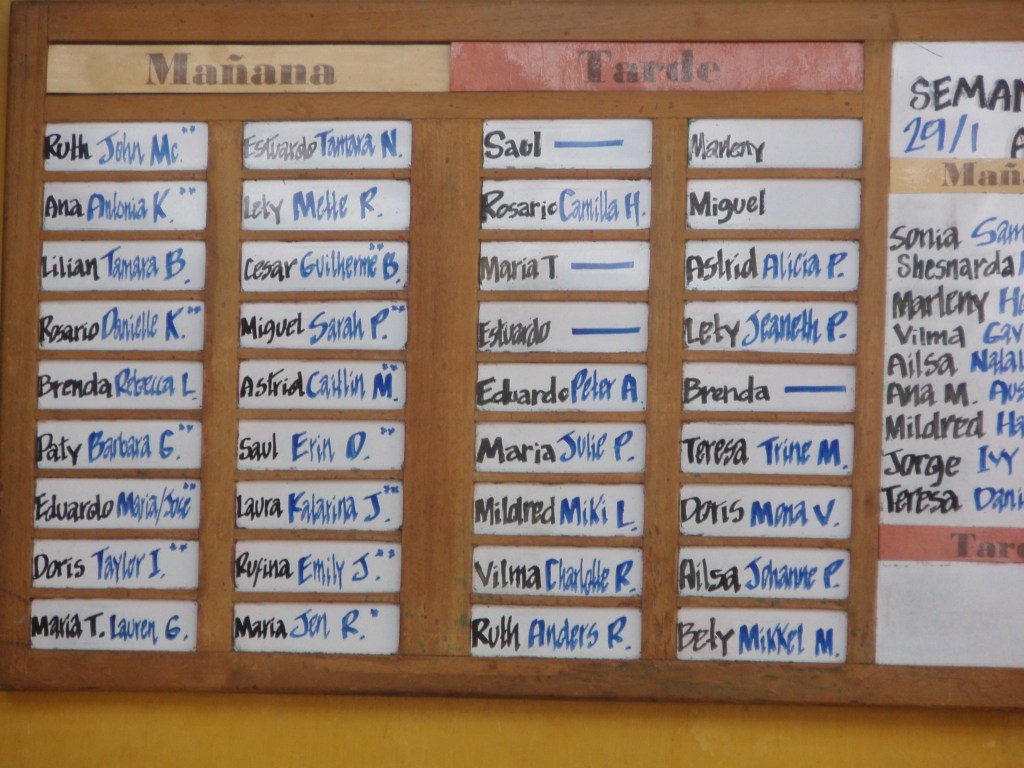 Mañana
Ruth John Mc."
Ana Antonia K."
Lilian Tamara B.
Rosario Danielle K."
Brenda Rebecca L
Paty Barbara G."
Eduardo Maria/Jose
Doris Taylor I."
Maria T. Lauren G.
Estuardo Tamara N.
Lety Mette R.
Cesar Guilherme B."
Miguel Sarah P."
Astrid Caitlin M."
Saul Erin O."
Laura Katarina J."
Rufina Emily J."
Maria Jen R."
Tarde
Saul —
Rosario Camilla H.
Maria T —
Estuardo —
Eduardo Peter A.
Maria Julie P.
Mildred Miki L.
Vilma Charlotte R.
Ruth Anders R.
Marleny
Miguel
Astrid Alicia P.
Lety Jeaneth P.
Brenda —
Teresa Trine M.
Doris Mona V.
Ailsa Johanne P.
Bely Mikkel M.
SEMAN
29/1 A
Maña
Sonia Sam
Shesnarda
Marleny Ho
Vilma Gav
Ailsa Natal
Ana M. Aus
Mildred Ha
Jorge Ivy
Teresa Dani
Tard